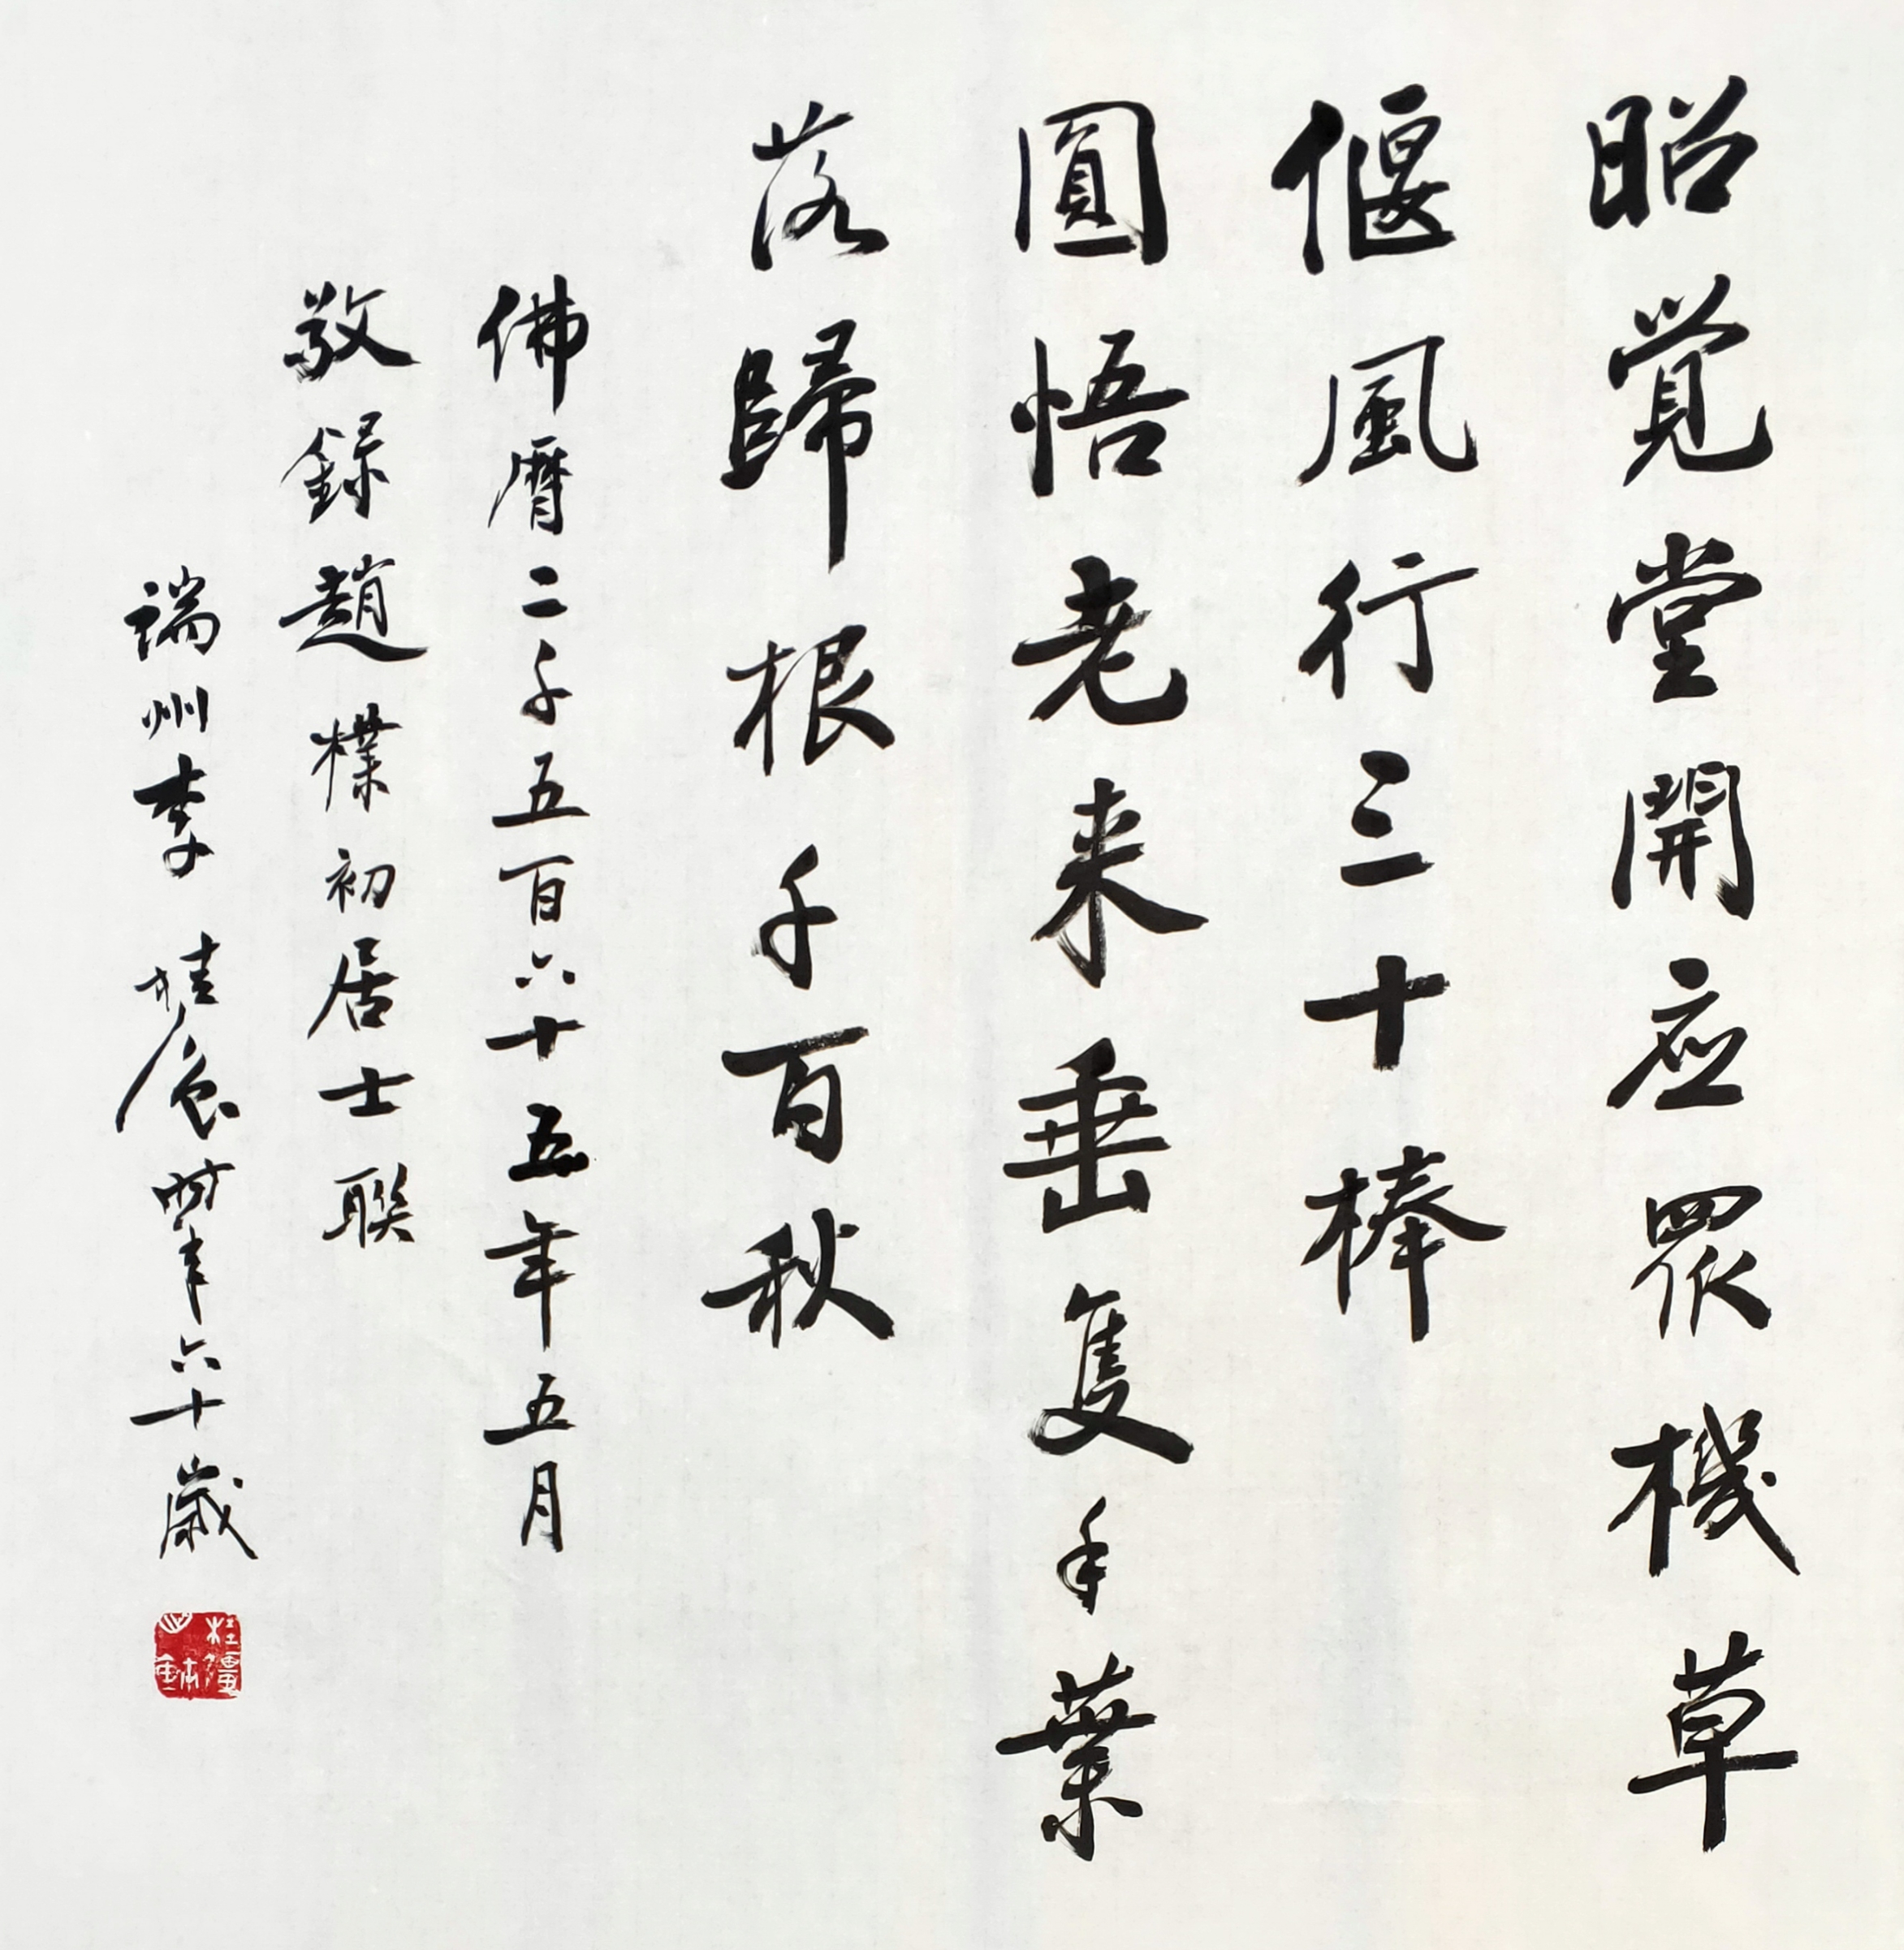 昭覚堂開应眾機草
偃風行三十棒
圓悟老来垂隻手葉
落歸根千百秋
佛曆二千五百六十五年五月
敬錄趙樸初居士聯
端州李桂 時年六十歲